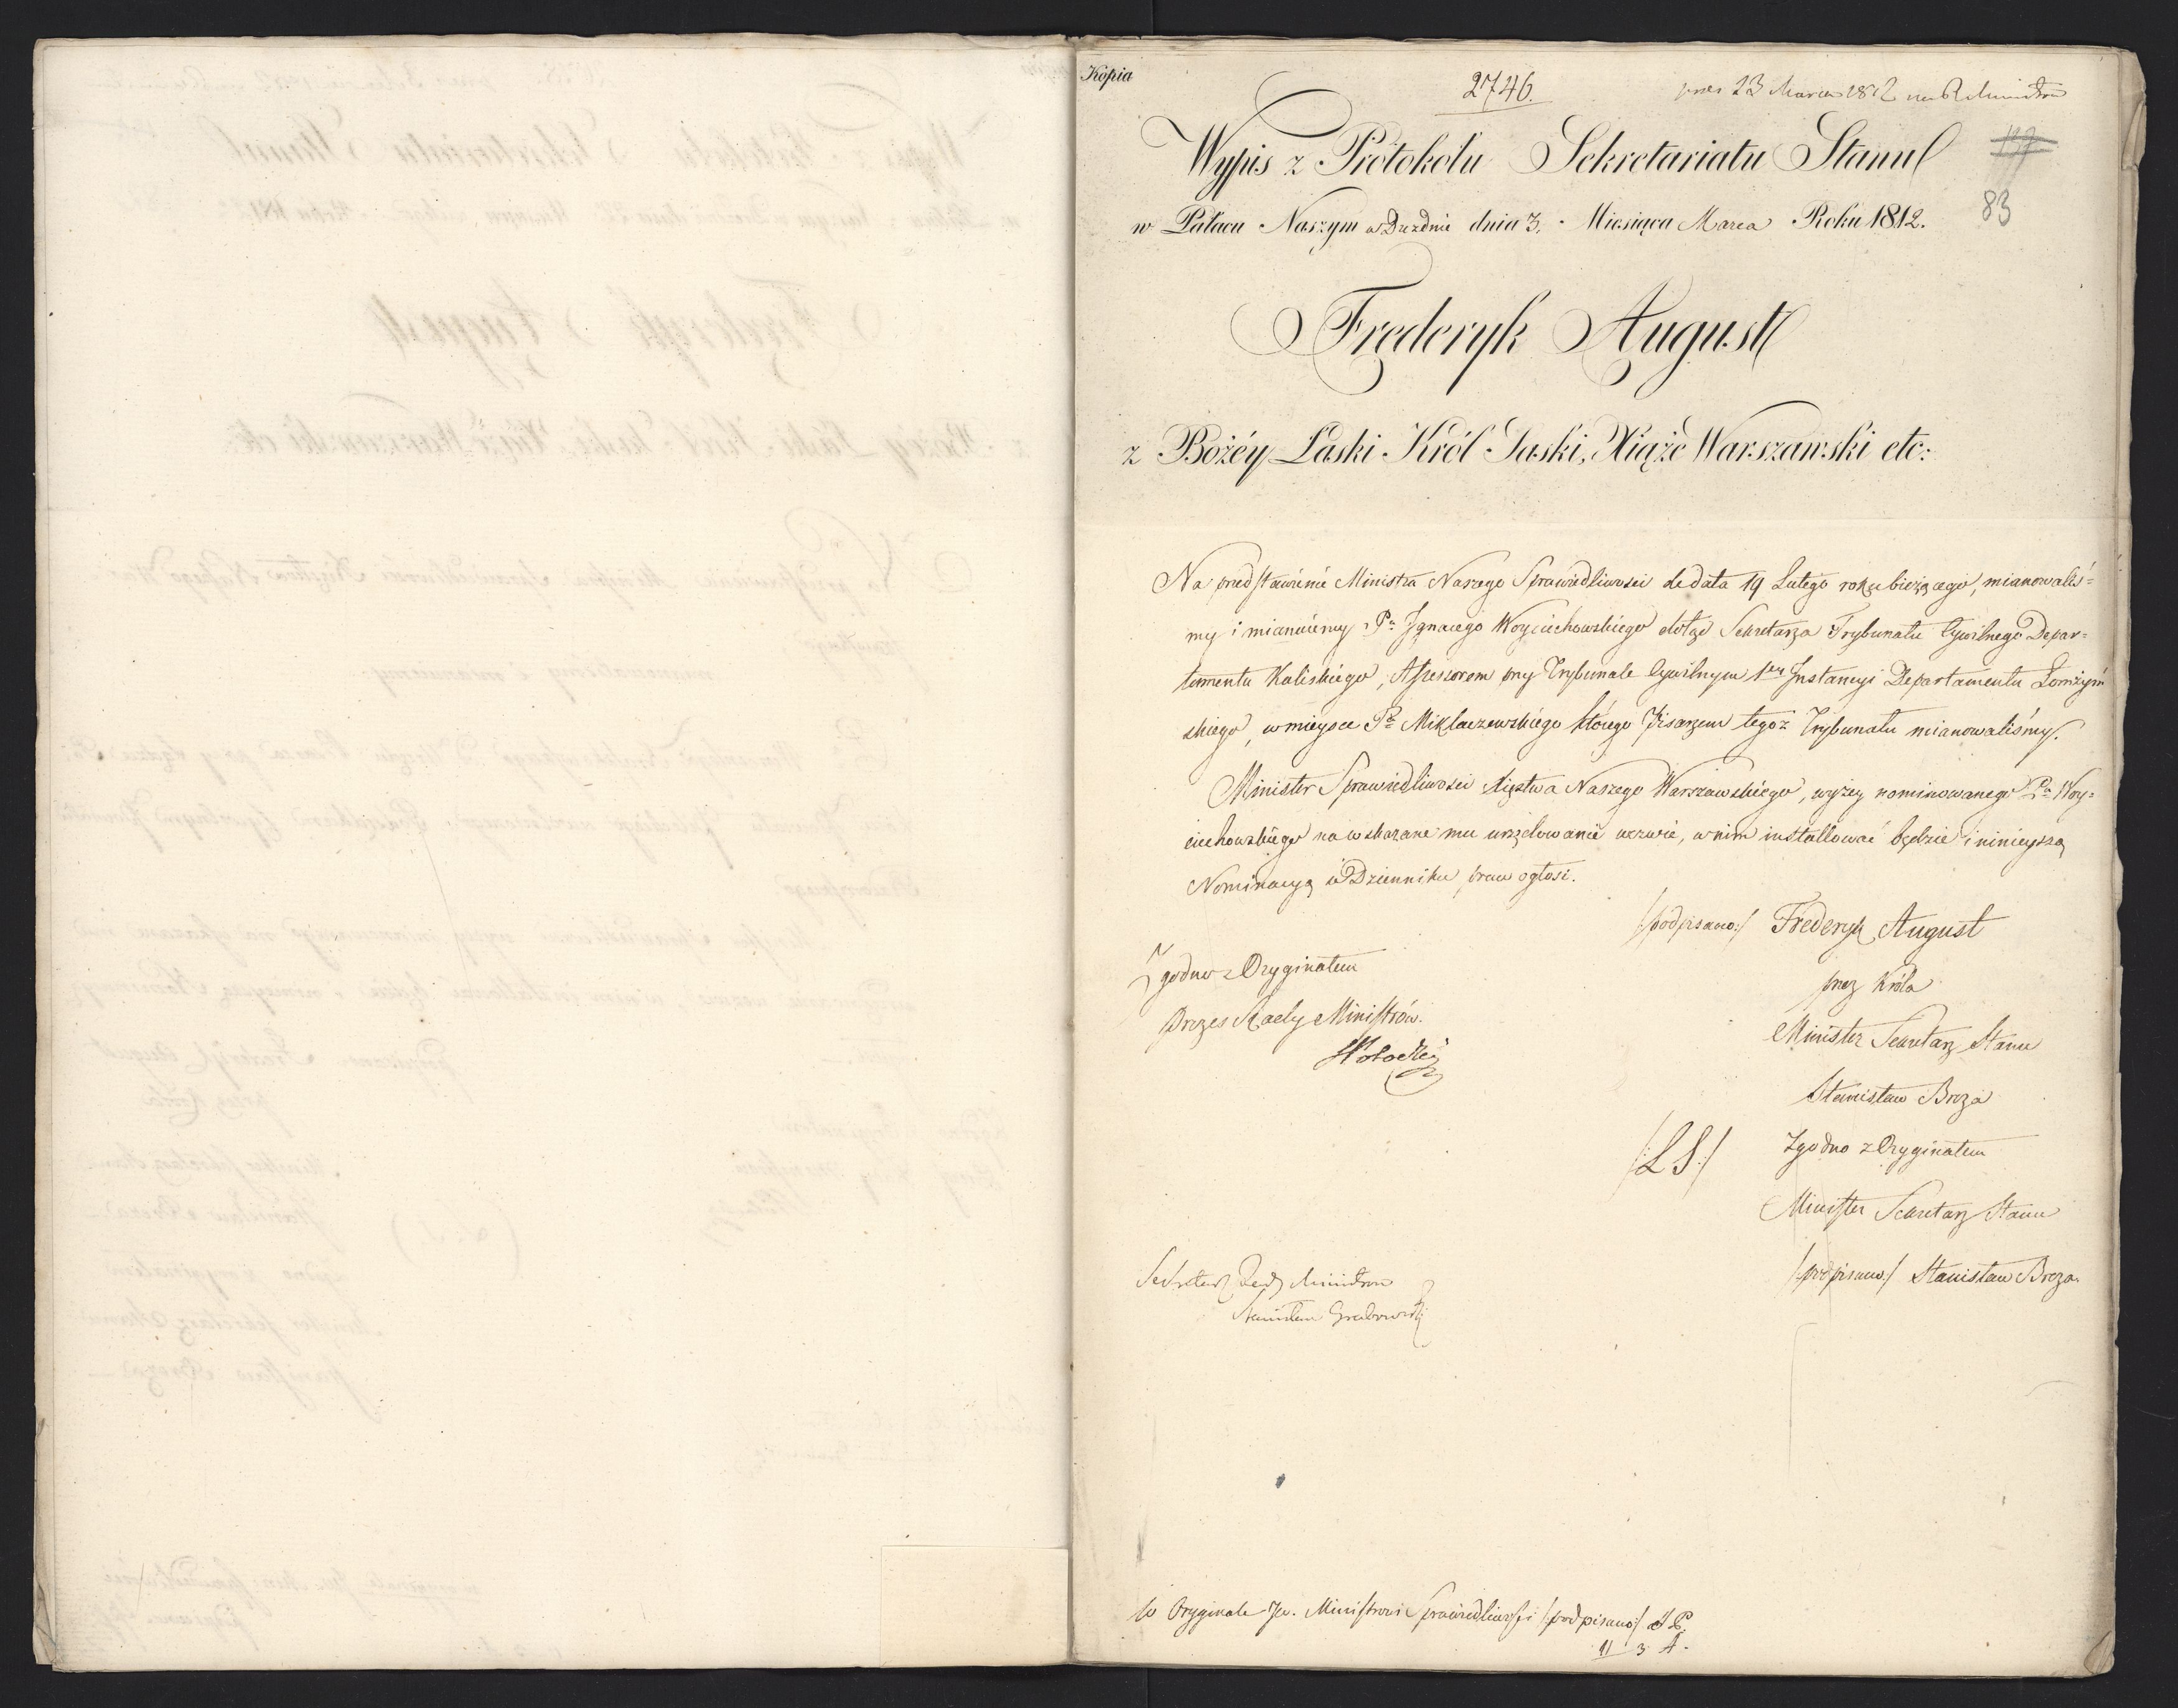 Kopia
2746.
pres 23 Marca 1812 na R Ministrów
137
83
Wypis z Protokołu Sekretariatu Stanu
w Pałacu Naszym w Dreźnie dnia 3. Miesiąca Marca Roku 1812.
Frederyk August
z Bożéy Łaski Król Saski, Xiąże Warszawski etc:
Na przedstawienie Ministra Naszego Sprawiedliwości de data 19 Lutego roku bieżącego, mianowaliś=
my i mianuiemy Pa Ignacego Woyciechowskiego dotąd Sekretarza Trybunału Cywilnego Depar=
tamentu Kaliskiego, Assessorem przy Trybunale Cywilnym 1ey Instancyi Departamentu Łomżyń
skiego, w mieysce Pa Miklaszewskiego którego Pisarzem tegoż Trybunału mianowaliśmy.
Minister Sprawiedliwości Xięstwa Naszego Warszawskiego, wyżey nominowanego Pa Woy=
ciechowskiego na wskazane mu urzędowanie wezwie, w nim installować będzie i ninieyszą
Nominacyą w Dzienniku praw ogłosi.
/podpisano:/ Frederyk August
przez Króla
Minister Sekretarz Stanu
Stanisław Breza
/:LS:/ Zgodno z Oryginałem
Minister Sekretarz Stanu
/podpisano:/ Stanisław Breza.
Zgodno z Oryginałem
Prezes Rady Ministrów.
Sekretarz Rady Ministrów
Stanisław Grabowski
W Oryginale JW. Ministrowi Sprawiedliwości /podpisano:/ S P.
11 3 A.